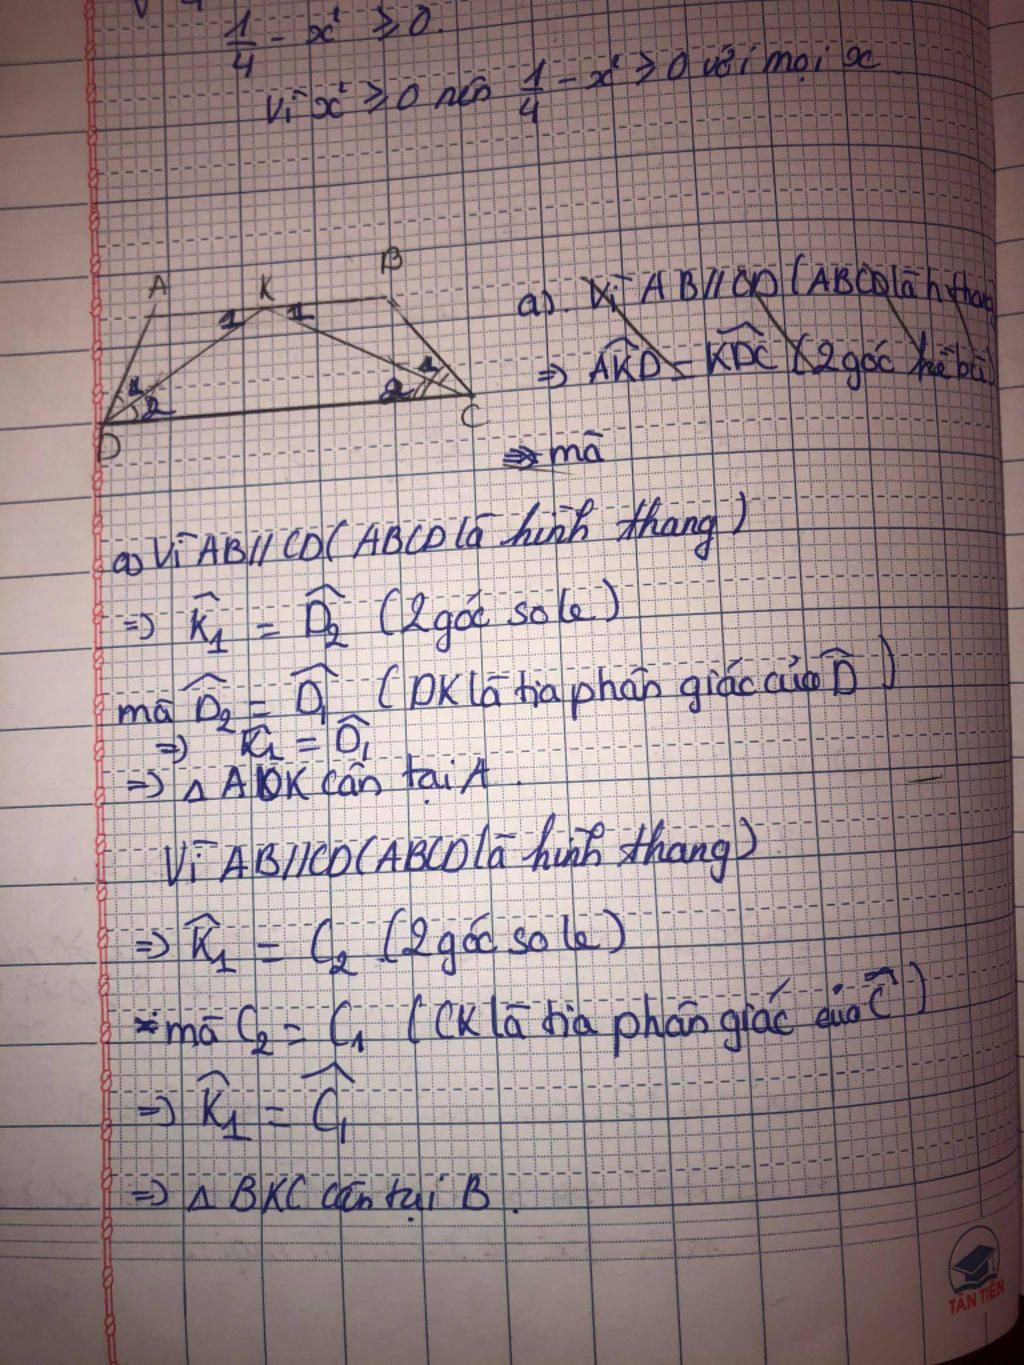 1/4 - x² ≥ 0.
Vì x² ≥ 0 nên 1/4 - x² ≥ 0 với mọi x
A K B
1 1
1 2 2 1
D C
a). Vì AB//CD (ABCD là h thang
=> AKD = KDC (2 góc kề bù)
=> mà
a) Vì AB//CD (ABCD là hình thang)
=> K̂1 = D̂2 (2 góc so le)
mà D̂2 = D̂1 (DK là tia phân giác của D̂)
=> K̂1 = D̂1
=> Δ ADK cân tại A.
Vì AB//CD (ABCD là hình thang)
=> K̂1 = C2 (2 góc so le)
mà C2 = C1 (CK là tia phân giác của Ĉ)
=> K̂1 = Ĉ1
=> Δ BKC cân tại B.
TÂN TIẾN